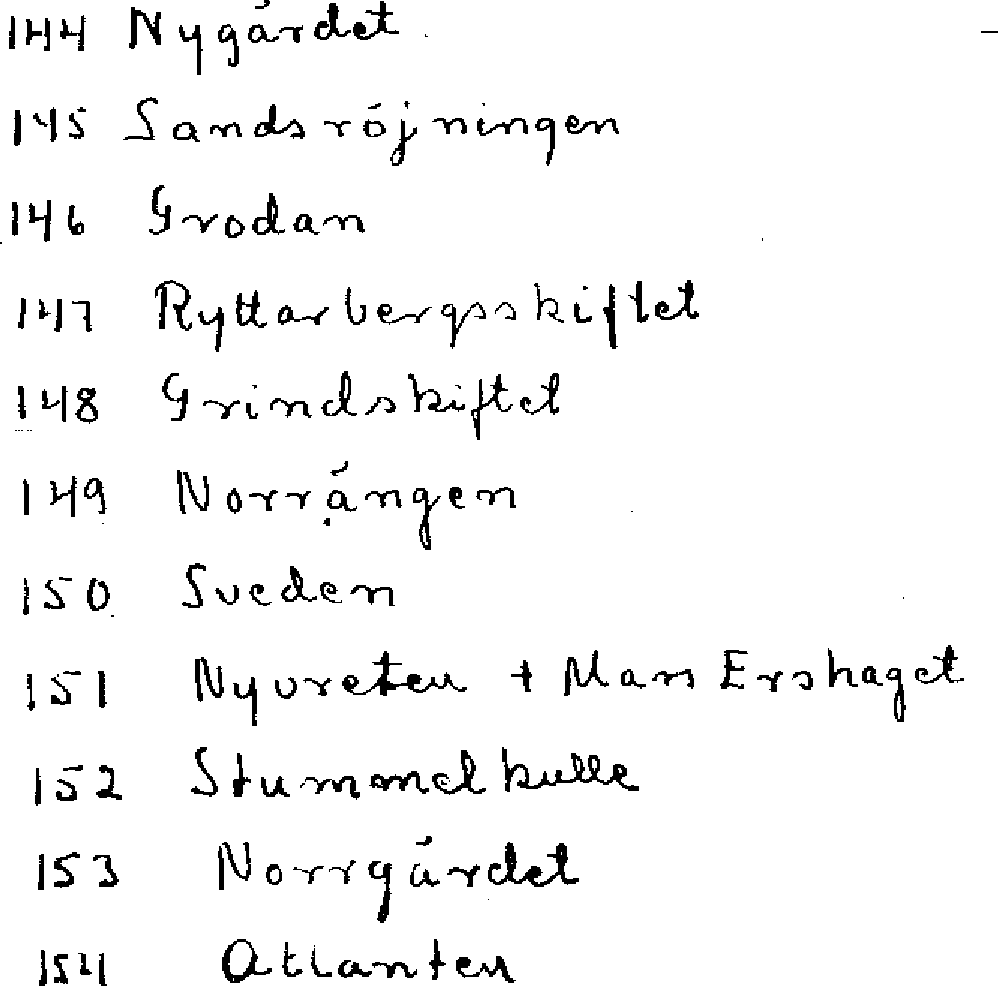 144 Nygärdet
145 Sandsröjningen
146 Grodan
147 Ryttarbergsskiftet
148 Grindskiftet
149 Norrängen
150 Sveden
151 Nyvreten + Mans Ershaget
152 Stummelkulle
153 Norrgärdet
154 Atlanten